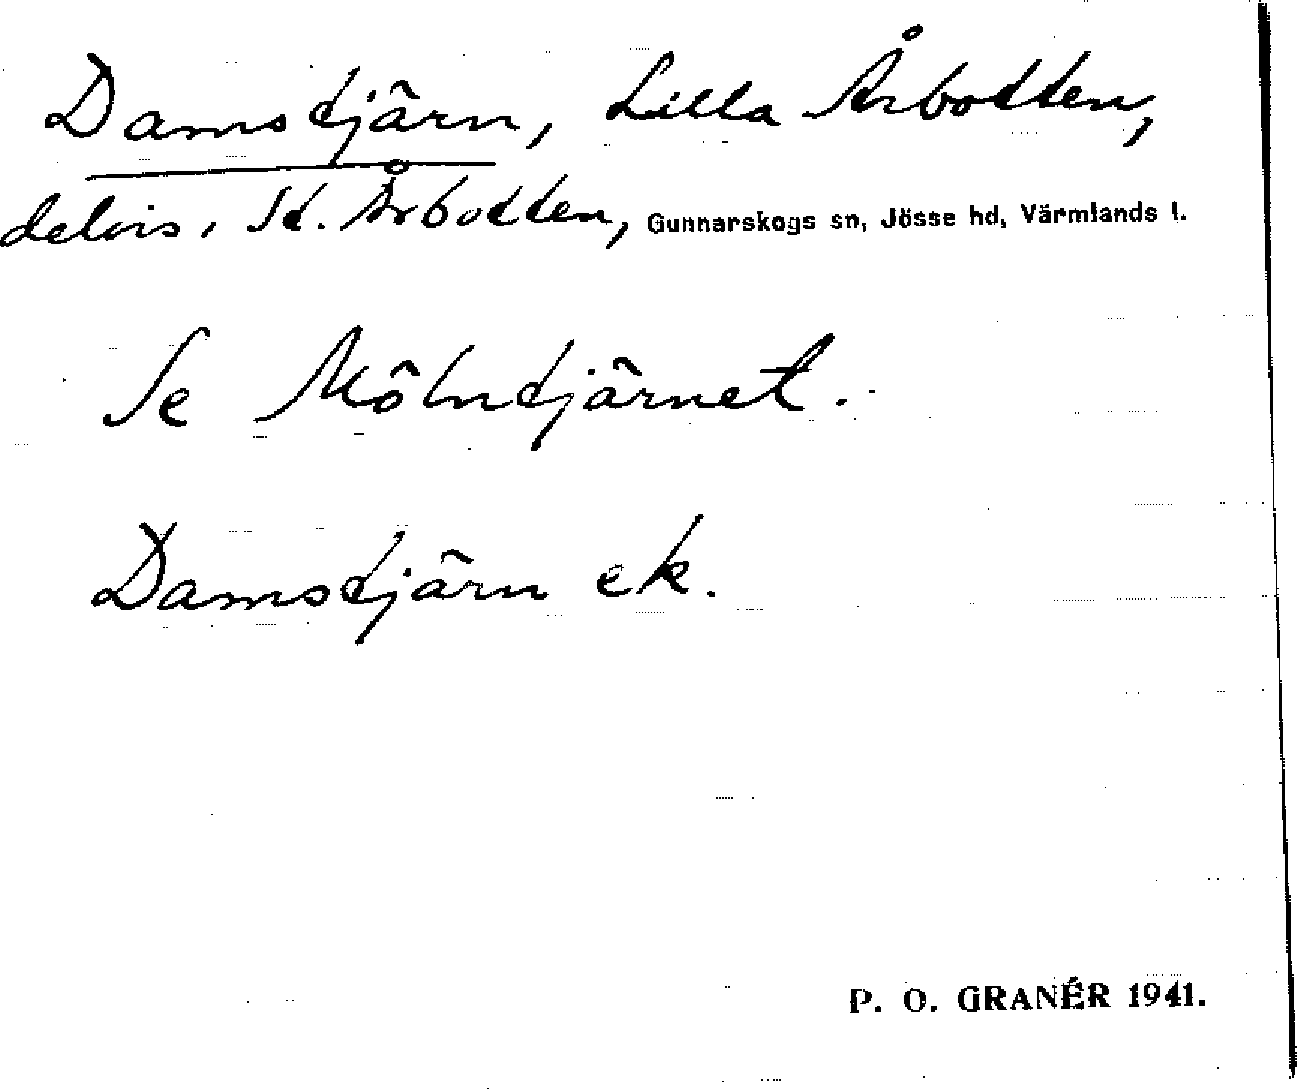 Damstjärn, Lilla Årbotten,
delvis, St. Årbotten, Gunnarskogs sn, Jösse hd, Värmlands l.
Se Mölntjärnet.
Damstjärn ek.
P. O. GRANÉR 1941.